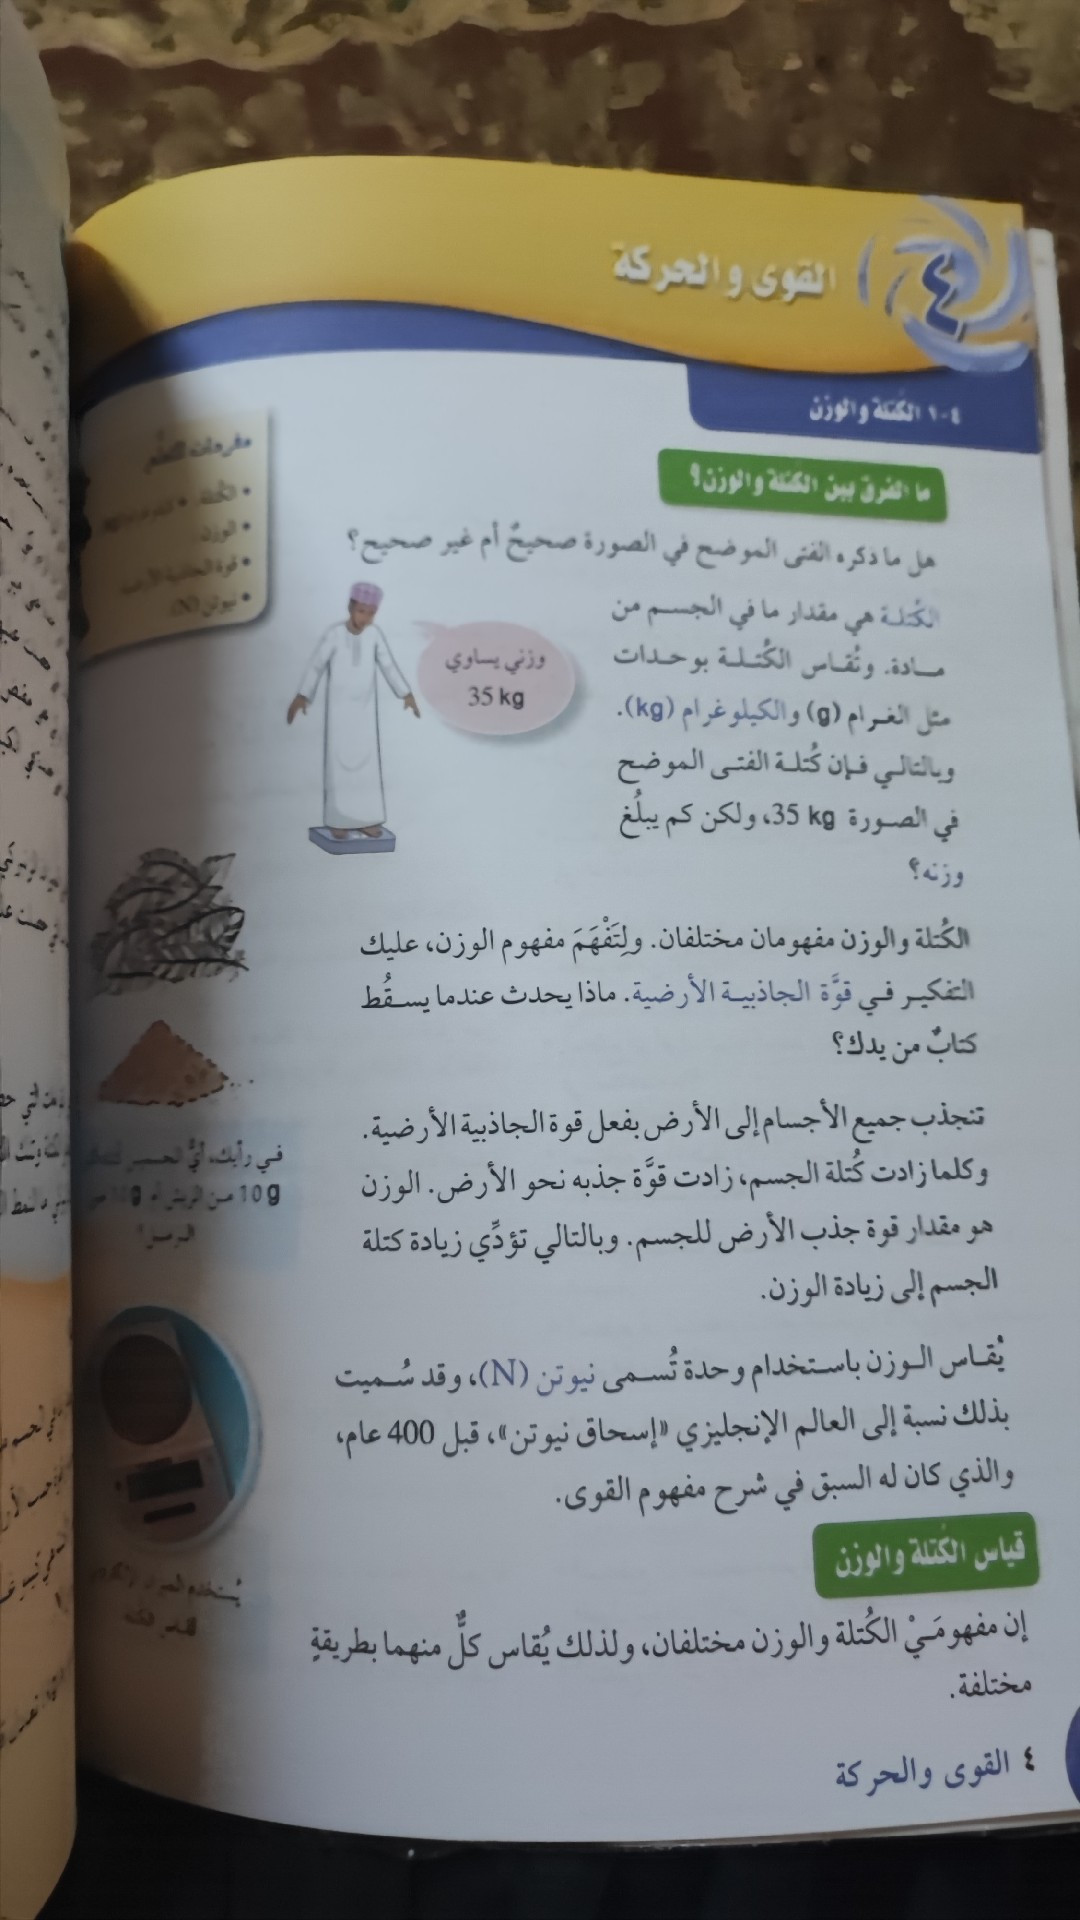 ٤ القوى والحركة
٤-١ الكُتلة والوزن
ما الفرق بين الكتلة والوزن؟
هل ما ذكره الفتى الموضح في الصورة صحيحٌ أم غير صحيح؟
الكُتلة هي مقدار ما في الجسم من
مادة. وتُقاس الكُتلة بوحدات
مثل الغرام (g) والكيلوغرام (kg).
وبالتالي فإن كُتلة الفتى الموضح
في الصورة 35 kg، ولكن كم يبلُغ
وزنه؟
وزني يساوي
35 kg
الكُتلة والوزن مفهومان مختلفان. ولِتَفْهَمَ مفهوم الوزن، عليك
التفكير في قوَّة الجاذبية الأرضية. ماذا يحدث عندما يسقُط
كتابٌ من يدك؟
تنجذب جميع الأجسام إلى الأرض بفعل قوة الجاذبية الأرضية.
وكلما زادت كُتلة الجسم، زادت قوَّة جذبه نحو الأرض. الوزن
هو مقدار قوة جذب الأرض للجسم. وبالتالي تؤدِّي زيادة كتلة
الجسم إلى زيادة الوزن.
يُقاس الوزن باستخدام وحدة تُسمى نيوتن (N)، وقد سُميت
بذلك نسبة إلى العالم الإنجليزي «إسحاق نيوتن»، قبل 400 عام،
والذي كان له السبق في شرح مفهوم القوى.
قياس الكُتلة والوزن
إن مفهومَيْ الكُتلة والوزن مختلفان، ولذلك يُقاس كلٌّ منهما بطريقةٍ
مختلفة.
مفردات للتعلم
• الكتلة
• الوزن
• قوة الجاذبية الأرضية
• نيوتن (N)
في رأيك، أيُّ
10 g من الريش أم
يُستخدم
لقياس الكتلة
٤ القوى والحركة